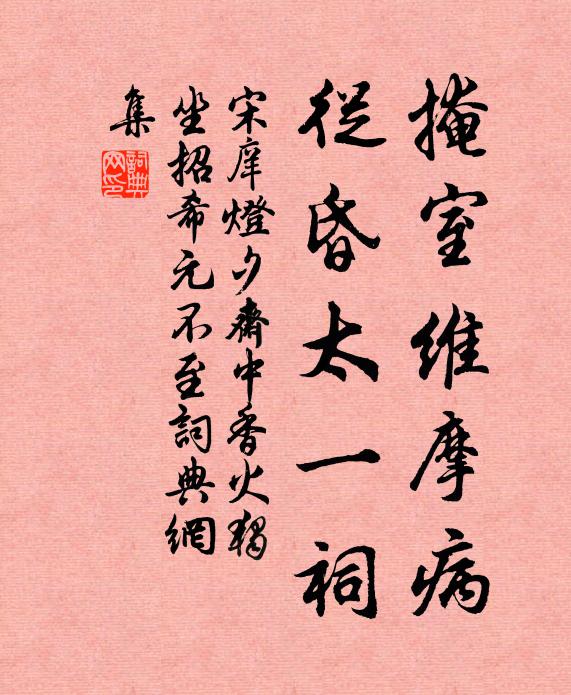 掩室維摩病
從昏太一祠
宋庠燈夕齋中香火獨
坐招希元不至詞典網
集
詞典網印